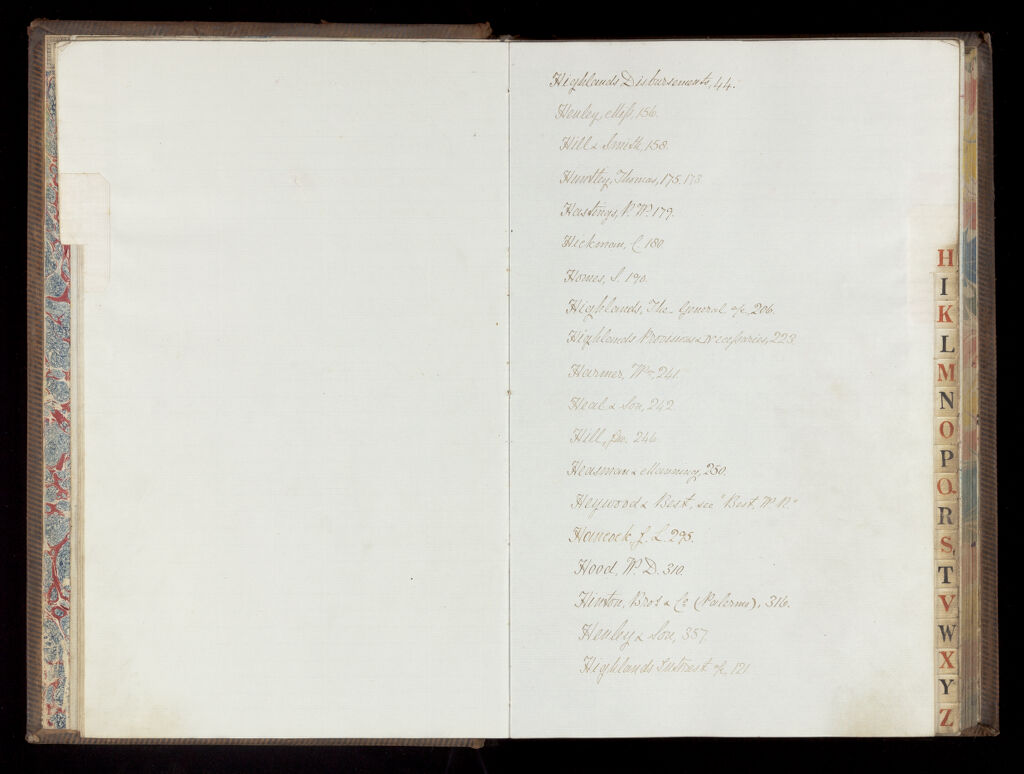 Highlands Disbursements, 44.
Henley, Miss, 156.
Hill & Smith, 158.
Huntley, Thomas, 175.173
Hastings, P. W. 179.
Hickman, C. 180
Homes, S. 190.
Highlands, The General a/c 206.
Highlands Provisions & Necessaries, 223.
Harmer, Wm. 241.
Heal & Son, 242
Hill, Jno. 246
Heasman & Manning, 250.
Heywood & Best, see "Best, W. R."
Hancock, J. L. 295.
Hood, W. D. 310.
Hinton, Bros. & Co. (Palermo), 316.
Henley & Son, 357
Highlands Interest a/c 121
H
I
K
L
M
N
O
P
Q.
R
S.
T
V
W
X
Y
Z